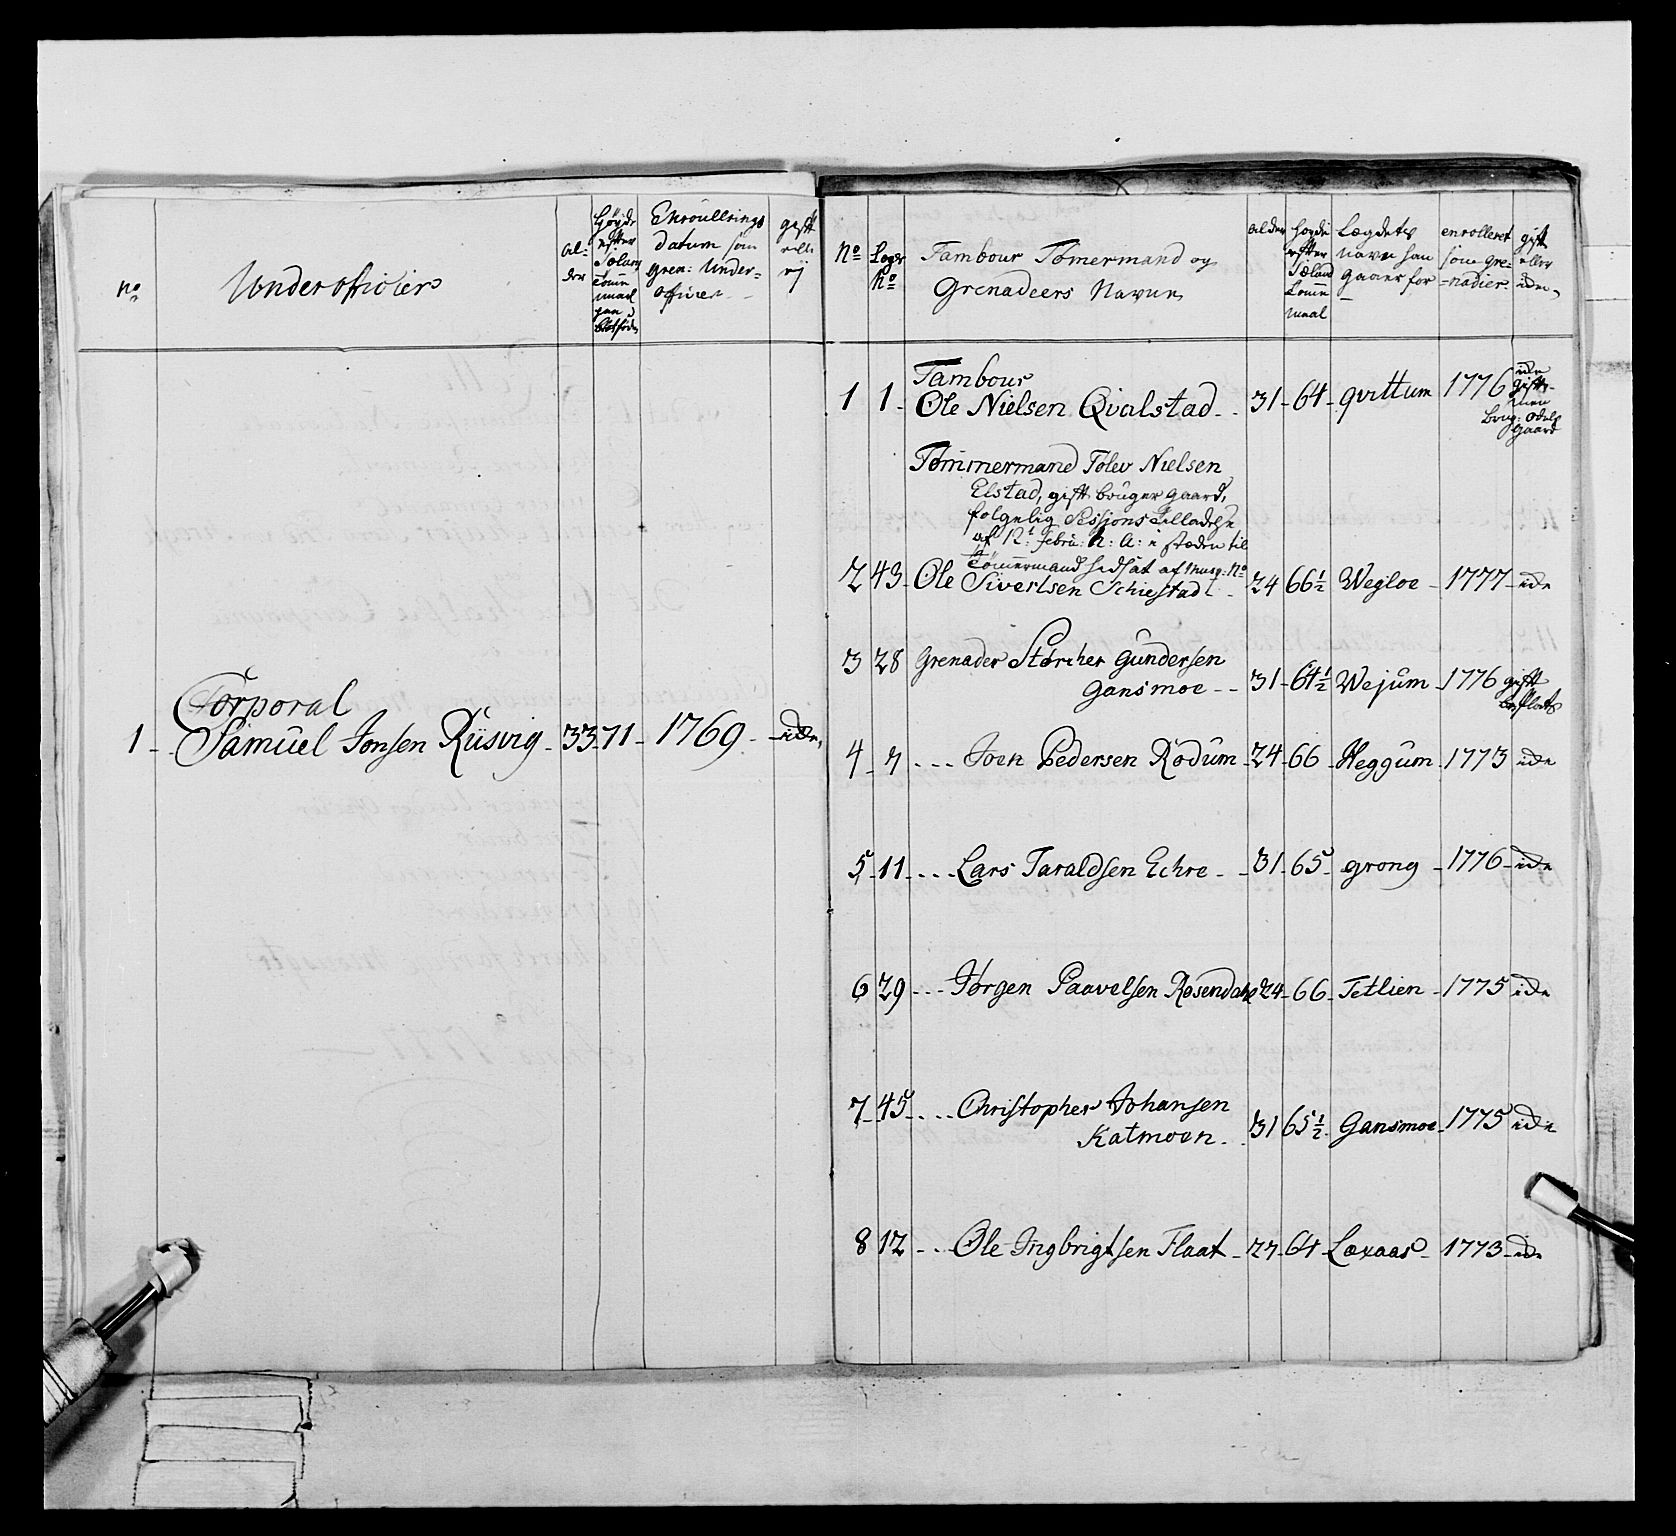 no
Underofficier
al-
der
høyde
efter
Siælans
Tomme
maal
paa
blotføder
Enroullrings
datum som
gren: Under-
officeer
gift
eller
ej
Corporal
1 Samuel Jonsen Rüsvig 33 71 1769 ide
No
Legs
No
Tambour Tømermand og
Grenadeers Navne
alder
Høyde
efter
Siæland
Tomme
maal
Lægdets
navn han
gaaer for
enrolleret
som gre-
nadier
gift
eller
iden
Tambour
1 1 Ole Nielsen Qvalstad 31 64 qvittum 1776 ide
gift
men
brug: odels
gaard
Tømmermand Tolev Nielsen
Elstad, gift bruger gaard,
følgelig Sessions Tilladelse
af 12t Febru: h: a: i stæden til
Tømermand hidsat af Musq: No
2 43 Ole Sivertsen Schiestad 24 66½ Wegloe 1777 ide
3 28 Grenader Størcher Gundersen
Gansmoe 31 64½ Wejum 1776 gift
4 7 Joen Pedersen Rodum 24 66 Heggum 1773 ide
5 11 Lars Taraldsen Echre 31 65 grong 1776 ide
6 29 Jørgen Paavelsen Rosendahl 24 66 Tetlien 1775 ide
7 45 Christopher Johansen
Katmoen 31 65½ Gansmoe 1775 ide
8 12 Ole Ingbrigtsen Flaat 27 64 Læxaas 1773 ide